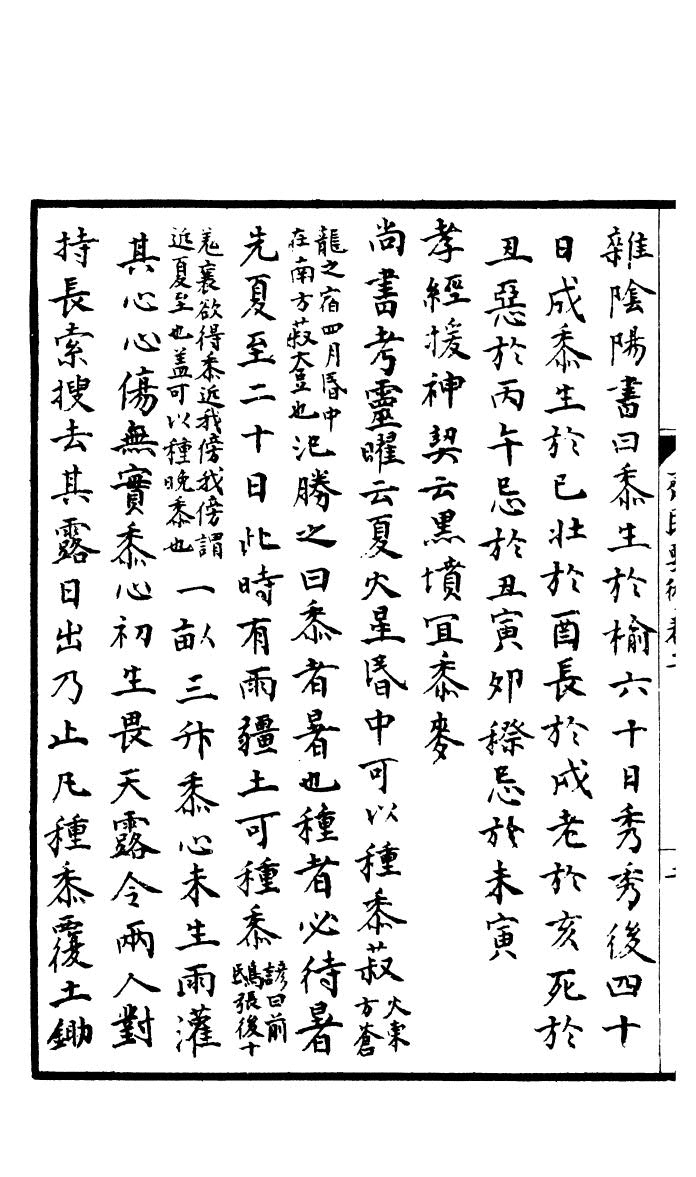 雜陰陽書曰黍生於榆六十日秀秀後四十
日成黍生於巳壯於酉長於戌老於亥死於
丑惡於丙午忌於丑寅卯穄忌於未寅
孝經援神契云黑墳宜黍麥
尚書考靈曜云夏火星昏中可以種黍菽火東方蒼
龍之宿四月昏中在南方菽大豆也氾勝之曰黍者暑也種者必待暑
先夏至二十日此時有雨疆土可種黍諺曰前鴟張後十
羌襄欲得黍近我傍我傍謂近夏至也盖可以種晚黍也一畝三升黍心未生雨灌
其心心傷無實黍心初生畏天露令兩人對
持長索搜去其露日出乃止凡種黍覆土鋤